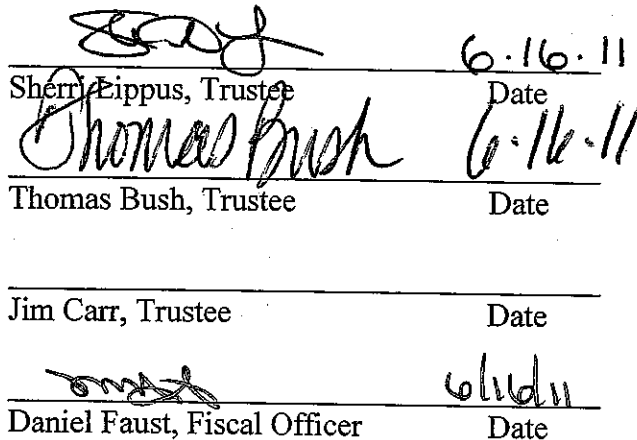 6.16.11
Sherri Lippus, Trustee Date
Thomas Bush 6.16.11
Thomas Bush, Trustee Date
Jim Carr, Trustee Date
6/16/11
Daniel Faust, Fiscal Officer Date